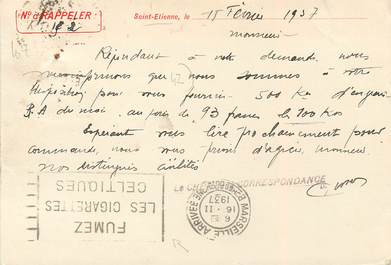 Nº à RAPPELER
Saint-Etienne, le 15 Février 1937
Monsieur
Répondant à votre demande, nous
nous sommes à votre
disposition pour vous fournir 500 Kgs
du mois au prix de 93 francs les 100 Kgs
Espérant vous lire prochainement pour
commande, nous vous prions d'agréer, Monsieur
nos distinguées civilités
LE CHEF DE CORRESPONDANCE
MARSEILLE ARRIVEE
16-II
1937
FUMEZ
LES CIGARETTES
CELTIQUES